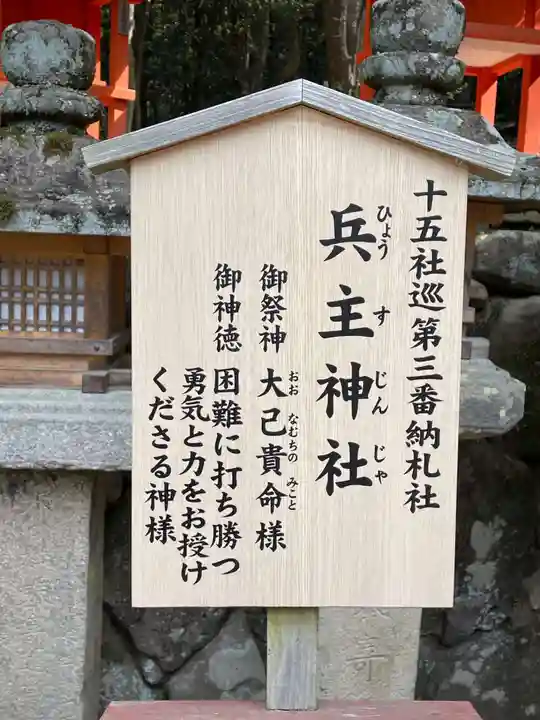 十五社巡第三番納札社
兵主神社
ひょうすじんじゃ
御祭神 大己貴命様
おおなむちのみこと
御神徳 困難に打ち勝つ
勇気と力をお授け
くださる神様
寄